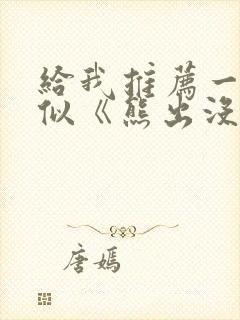 給我推薦一
似《熊出沒
唐嫣